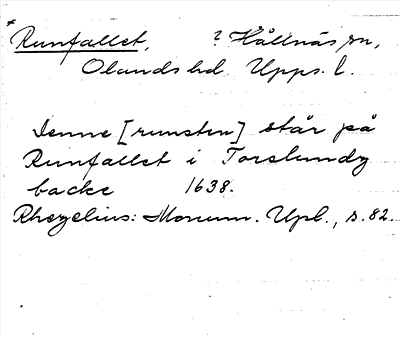 * Runfallet, ? Hållnäs sn,
Olands hd. Upps. l.
Denne [runsten] står på
Runfallet i Torslundz
backe 1638.
Rhezelius: Monum. Upl., s. 82.